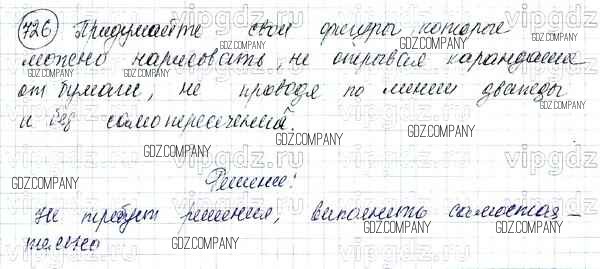 726 Придумайте свои фигуры которые
можно нарисовать, не отрывая карандаша
от бумаги, не проводя по линии дважды
и без самопересечений.
Решение:
Не требует решения, выполнить самостоя-
тельно
GDZ.COMPANY
vipgdz.ru